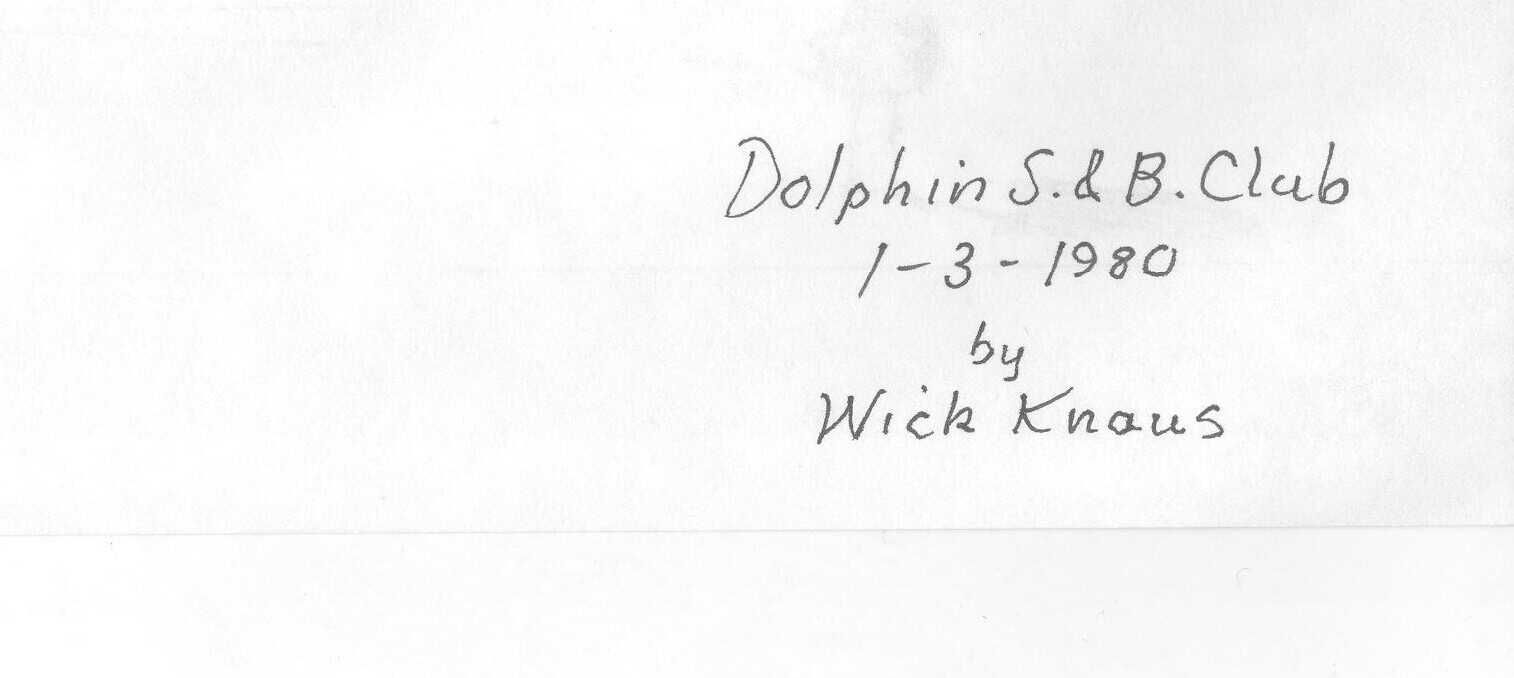 Dolphin S. & B. Club
1-3-1980
by
Wick Knaus